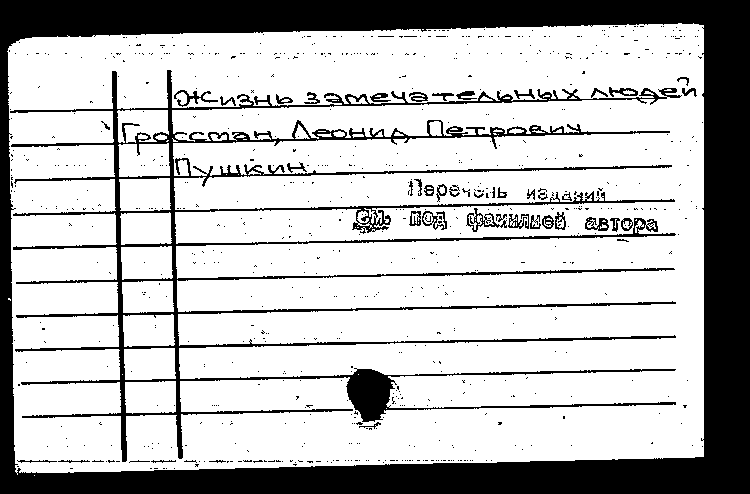 Жизнь замечательных людей.
Гроссман, Леонид Петрович.
Пушкин.
Перечень изданий
см. под фамилией автора